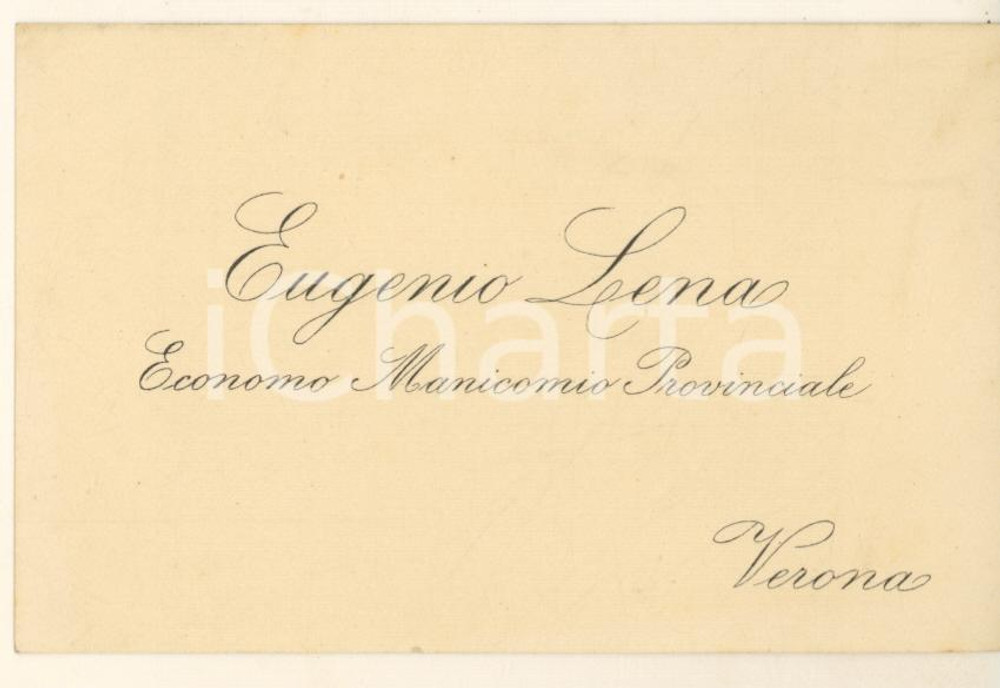 Eugenio Lena
iCharta
Economo Manicomio Provinciale
Verona